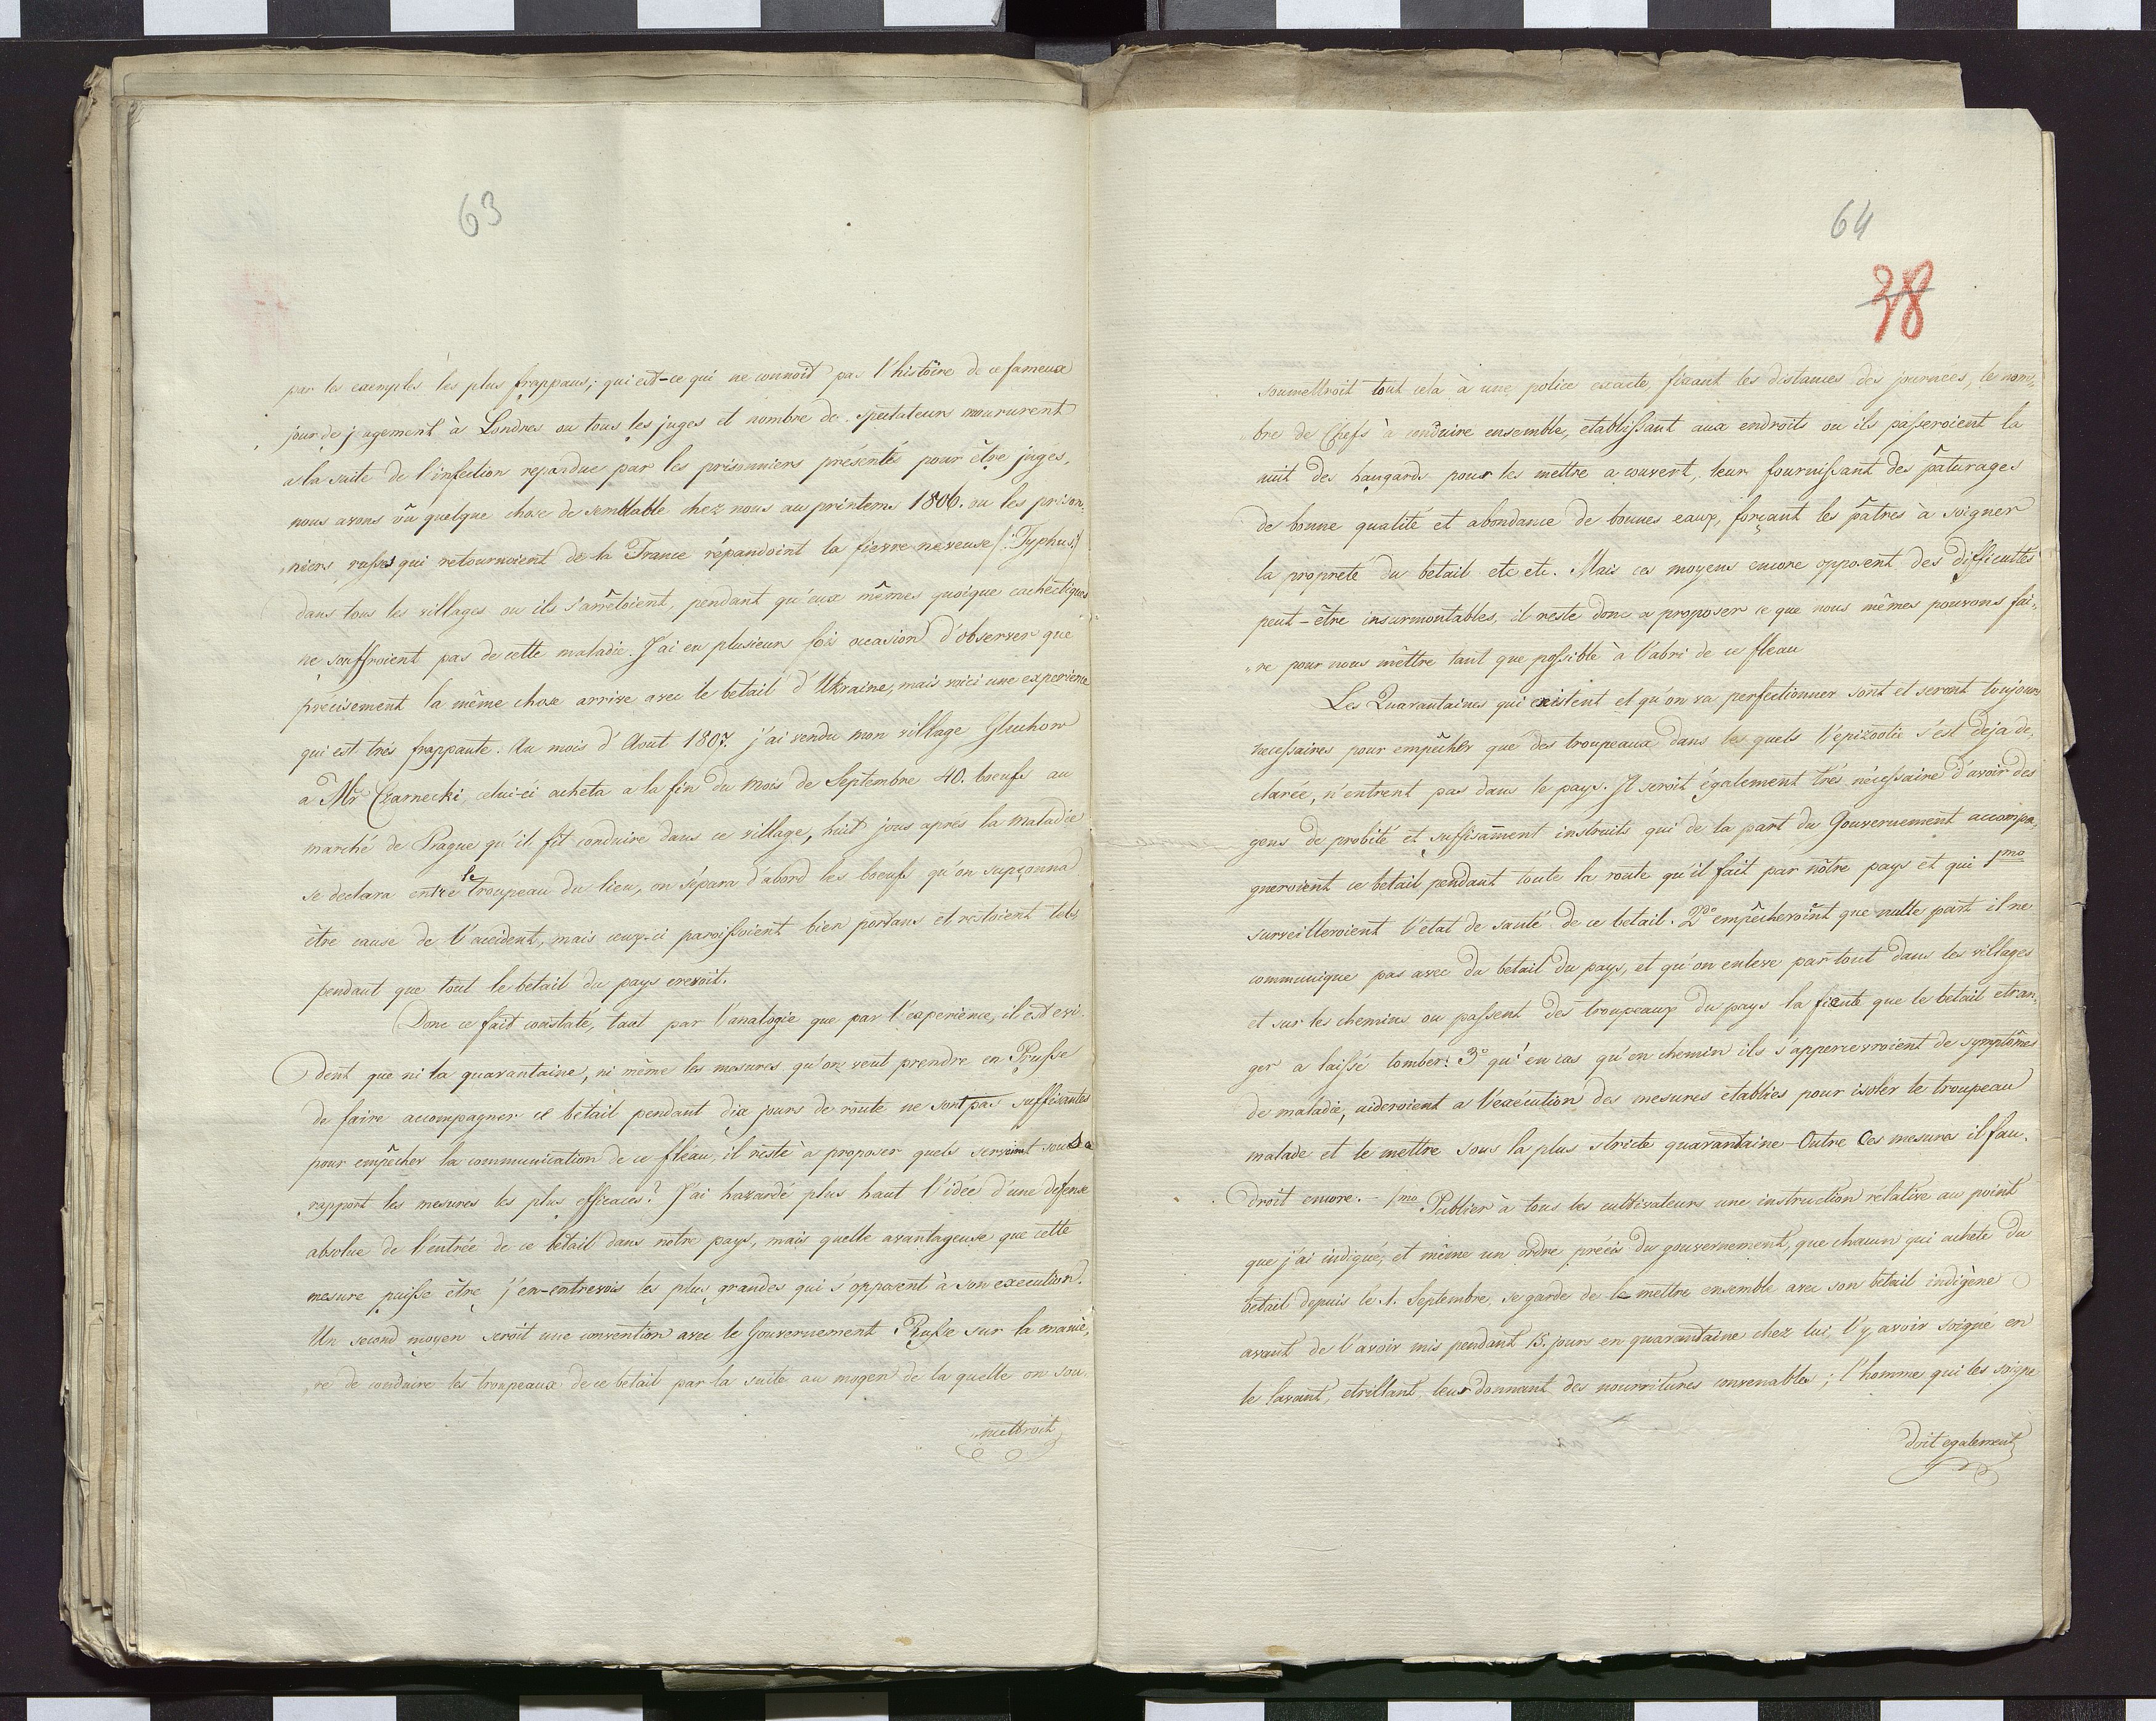 63
par les exemples les plus frappans; qui est-ce qui ne connoit pas l'histoire de ce fameux
jour de jugement à Londres ou tous les juges et nombre de spectateurs moururent
a la suite de l'infection repandue par les prisonniers presentés pour être jugés,
nous avons vû quelque chose de semblable chez nous au printems 1806. ou les prison,
„niers russes qui retournoient de la France répandoint la fievre neveuse /: Typhus :/
dans tous les villages ou ils s'arrêtoient, pendant qu'eux mêmes quoique cachectiques
ne souffroient pas de cette maladie. J'ai eu plusieurs fois occasion d'observer que
précisement la même chose arrive avec le betail d'Ukraine, mais voici une experience
qui est trés frappante. Au mois d'Aout 1807. j'ai vendu mon village Gluchow
a Mr Czarnecki, celui-ci acheta a la fin du mois de Septembre 40. boeufs au
marché de Prague qu'il fit conduire dans ce village, huit jous aprés la maladie
se declara entre le troupeau du lieu, on sépara d'abord les boeufs qu'on supçonna
être cause de l'accident, mais ceux-ci paroissoient bien portans et restoient tels
pendant que tout le betail du pays crevoit.
Donc ce fait constaté, tant par l'analogie que par l'experience, il est evi-
dent que ni la quarantaine, ni même les mesures qu'on veut prendre en Prusse
de faire accompagner ce betail pendant dix jours de route ne sont pas suffisantes
pour empêcher la communication de ce fléau, il reste à proposer quels seroient sous ce
rapport les mesures les plus efficaces? J'ai hazardé plus haut l'idée d'une defense
absolue de l'entrée de ce betail dans notre pays, mais quelle avantageuse que cette
mesure puisse être j'en-entrevois les plus grandes qui s'opposent à son execution.
Un second moyen seroit une convention avec le Gouvernement Russe sur la manié,
„re de conduire les troupeaux de ce betail par la suite au moyen de la quelle on sou-
mettroit
64
38
soumettroit tout cela à une police exacte, fixant les distances des journées, le nom,
„bre de Chefs à conduire ensemble, etablissant aux endroits ou ils passeroient la
nuit des hangards pour les mettre a couvert, leur fournissant des pâturages
de bonne qualité et abondance de bonnes eaux, forçant les pâtres à soigner
la propreté du betail etc etc. Mais ces moyens encore opposent des difficultés
peut-être insurmontables, il reste donc a proposer ce que nous mêmes pouvons fai,
„re pour nous mêttre tant que possible à l'abri de ce fleau
Les Quarantaines qui existent et qu'on va perfectionner sont et seront toujours
necessaires pour empêcher que des troupeaux dans les quels l'épizootie s'est deja de-
clarée, n'entrent pas dans le pays. Il seroit également trés nécessaire d'avoir des
gens de probité et suffisament instruits qui de la part du Gouvernement accompa,
gneroient ce betail pendant toute la route qu'il fait par nôtre pays et qui 1mo
surveilleroient l'état de santé de ce betail. 2do empêcheroint que nulle part il ne
communique pas avec du betail du pays, et qu'on enleve par tout dans les villages
et sur les chemins ou passent des troupeaux du pays la fiente que le betail etran,
ger a laissé tomber: 3o qu'en cas qu'en chemin ils s'appercevroient de symptômes
de maladie, aideroient a l'exécution des mesures etablies pour isoler le troupeau
malade et le mettre sous la plus stricte quarantaine - Outre ces mesures il fau-
droit encore. - 1mo Publier à tous les cultivateurs une instruction rélative au point
que j'ai indiqué, et même un ordre précis du gouvernement, que chacun qui achete du
betail depuis le 1. Septembre, se garde de le mettre ensemble avec son betail indigène
avant de l'avoir mis pendant 15. jours en quarantaine chez lui, l'y avoir soigné en
le lavant, etrillant, leur donnant des nourritures convenables; l'homme qui les soigne
doit egalement